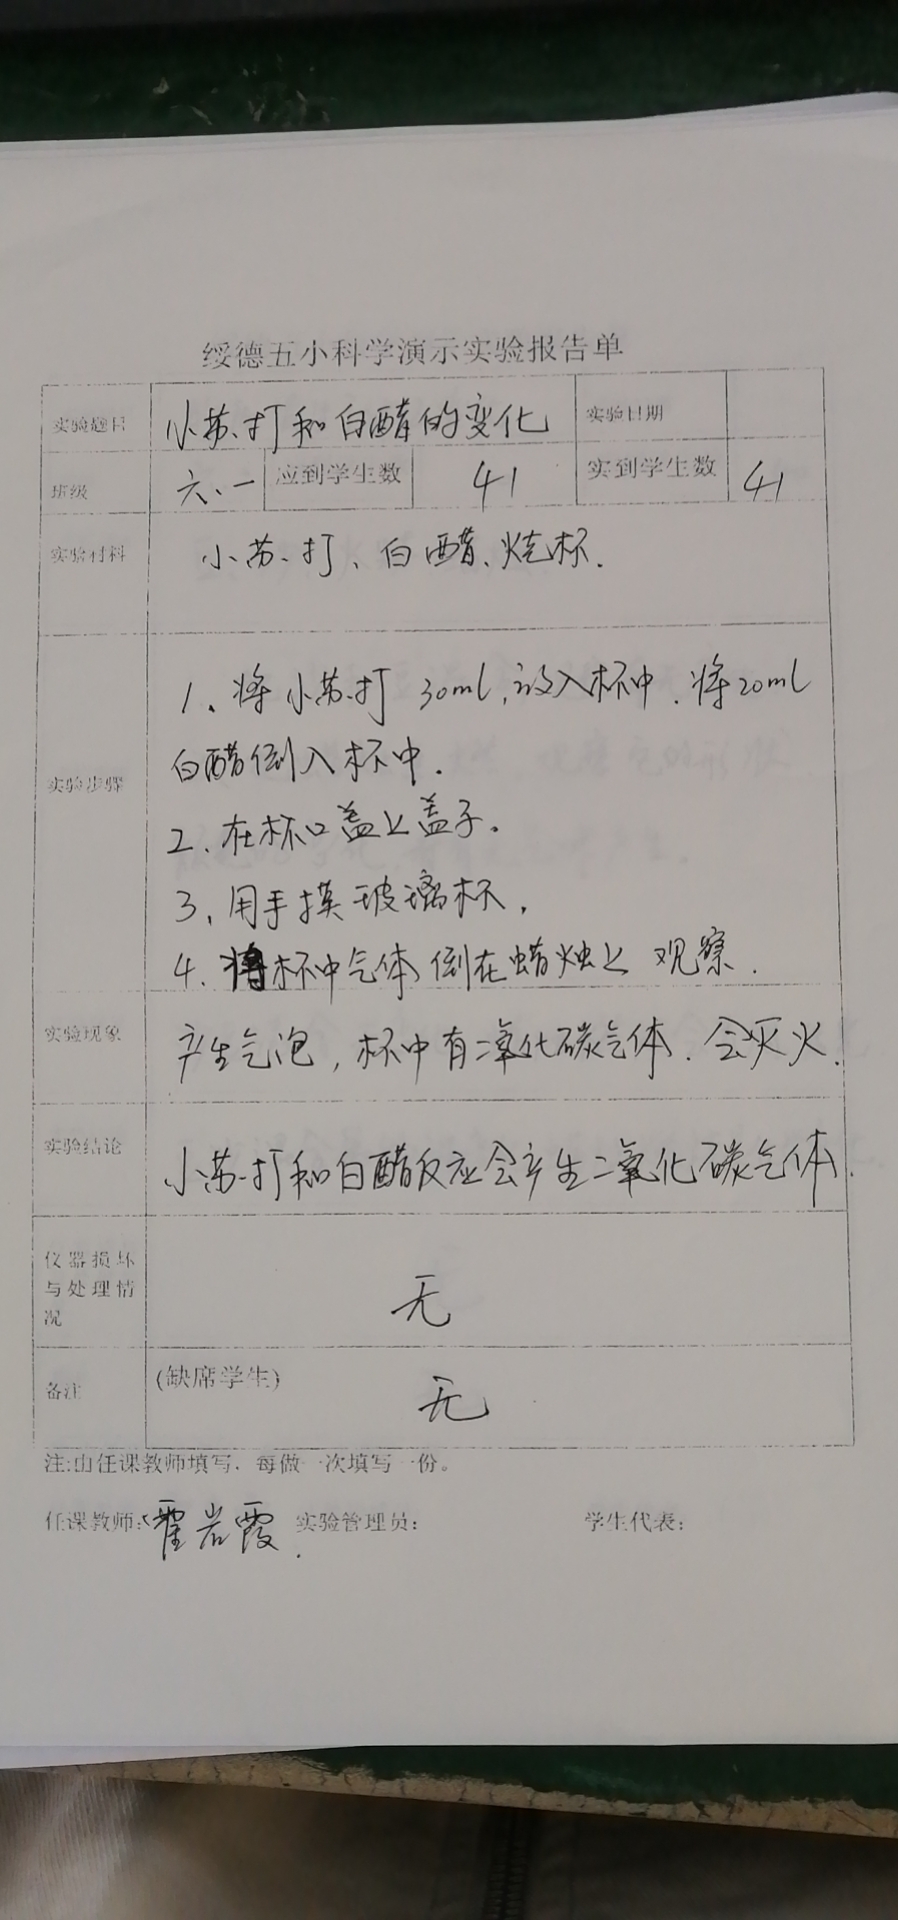 绥德五小科学演示实验报告单
实验题目 小苏打和白醋的变化 实验日期
班级 六、一 应到学生数 41 实到学生数 41
实验材料 小苏打、白醋、烧杯.
实验步骤
1、将小苏打30ml,放入杯中.将20ml
白醋倒入杯中.
2、在杯口盖上盖子.
3、用手摸玻璃杯.
4.将杯中气体倒在蜡烛上 观察.
实验现象 产生气泡,杯中有二氧化碳气体.会灭火.
实验结论 小苏打和白醋反应会产生二氧化碳气体.
仪器损坏
与处理情
况
无
备注 (缺席学生) 无
注:由任课教师填写.每做一次填写一份。
任课教师:霍岩霞. 实验管理员: 学生代表: